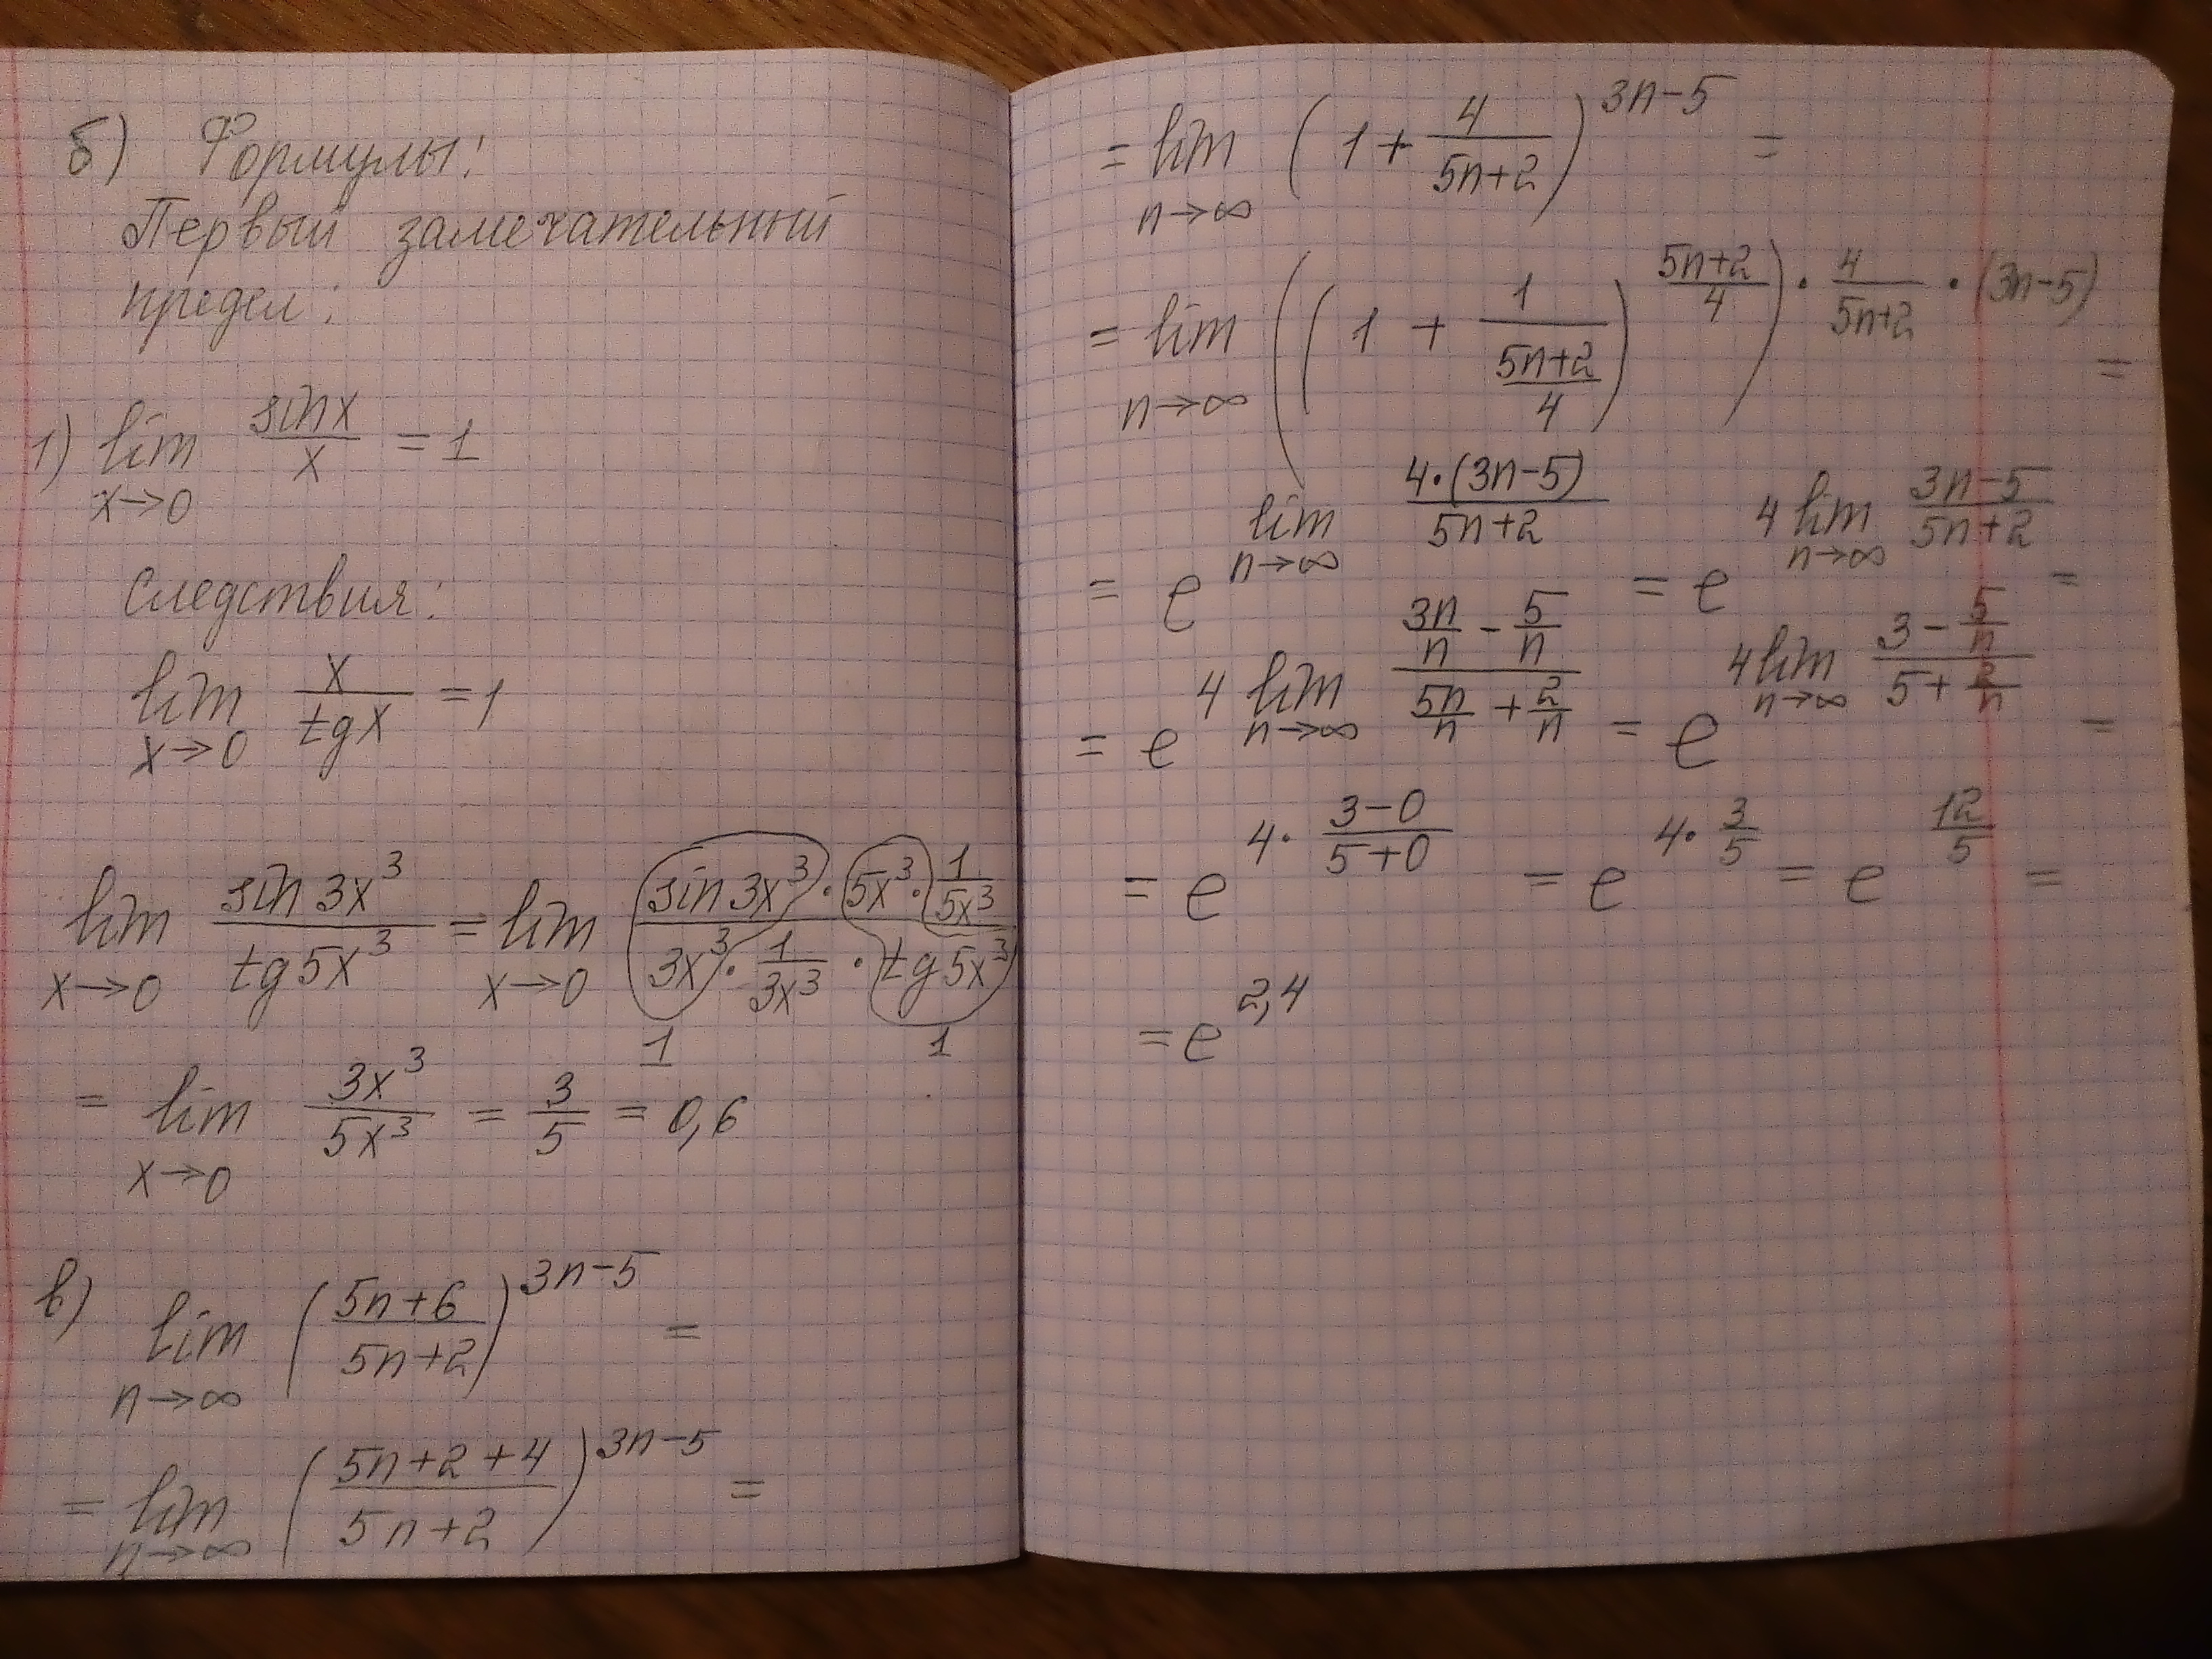 б) Формулы:
Первый замечательный
предел:
1) lim x→0 sin x / x = 1
Следствия:
lim x→0 x / tg x = 1
lim x→0 sin 3x³ / tg 5x³ = lim x→0 (sin 3x³ · 5x³ · 1/5x³) / (3x³ · 1/3x³ · tg 5x³)
1 1
= lim x→0 3x³ / 5x³ = 3/5 = 0,6
в) lim n→∞ ((5n+6) / (5n+2))^(3n-5) =
= lim n→∞ ((5n+2+4) / (5n+2))^(3n-5) =
= lim n→∞ (1 + 4/(5n+2))^(3n-5) =
= lim n→∞ ((1 + 1/((5n+2)/4))^((5n+2)/4))^(· 4/(5n+2) · (3n-5)) =
= e^(lim n→∞ 4·(3n-5) / (5n+2)) = e^(4 lim n→∞ (3n-5) / (5n+2)) =
= e^(4 lim n→∞ (3n/n - 5/n) / (5n/n + 2/n)) = e^(4 lim n→∞ (3 - 5/n) / (5 + 2/n)) =
= e^(4 · (3-0) / (5+0)) = e^(4 · 3/5) = e^(12/5) =
= e^(2,4)